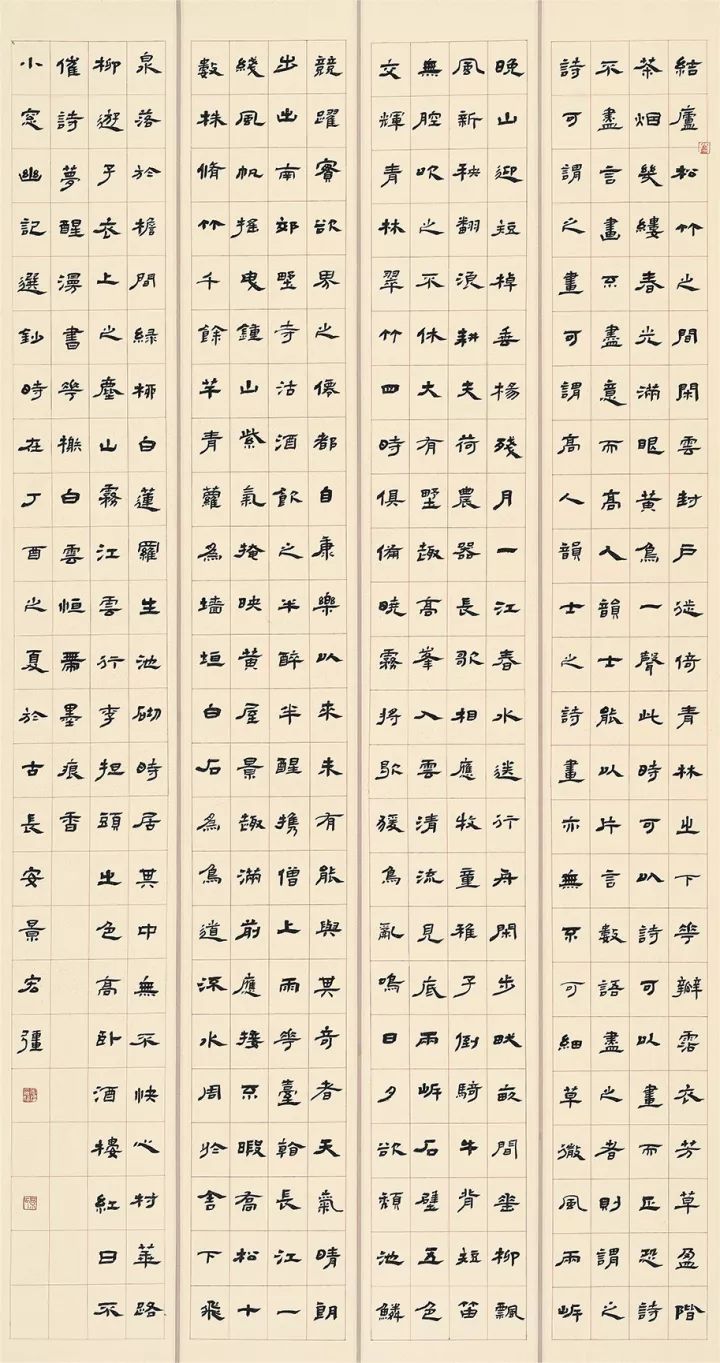 結廬松竹之間閑雲封戶徙倚青林之下華瓣霑衣芳草盈階
茶烟幾縷春光滿眼黃鳥一聲此時可以詩可以畫而正恐詩
不盡言畫不盡意而高人韻士能以片言數語盡之者則謂之
詩可謂之畫可謂高人韻士之詩畫亦無不可細草微風兩岸
晚山迎短棹垂楊殘月一江春水送行舟閑步畎畝間垂柳飄
風新秧翻浪耕夫荷農器長歌相應牧童稚子倒騎牛背短笛
無腔吹之不休大有野趣高峯入雲清流見底兩岸石壁五色
交輝青林翠竹四時俱備曉霧將歇猿鳥亂鳴日夕欲頹池鱗
競躍實欲界之僊都自康樂以來未有能與其奇者天氣晴朗
步出南郊野寺沽酒飲之半醉半醒攜僧上雨華臺看長江一
綫風帆搖曳鍾山紫氣掩映黃屋景趣滿前應接不暇喬松十
數株脩竹千餘竿青蘿為墻垣白石為鳥道流水周於舍下飛
泉落於檐間綠柳白蓮羅生池砌時居其中無不快心村華路
柳遊子衣上之塵山霧江雲行李担頭之色高臥酒樓紅日不
催詩夢醒漫書華榭白雲恒帶墨痕香
小窗幽記選鈔時在丁酉之夏於古長安景宏彊